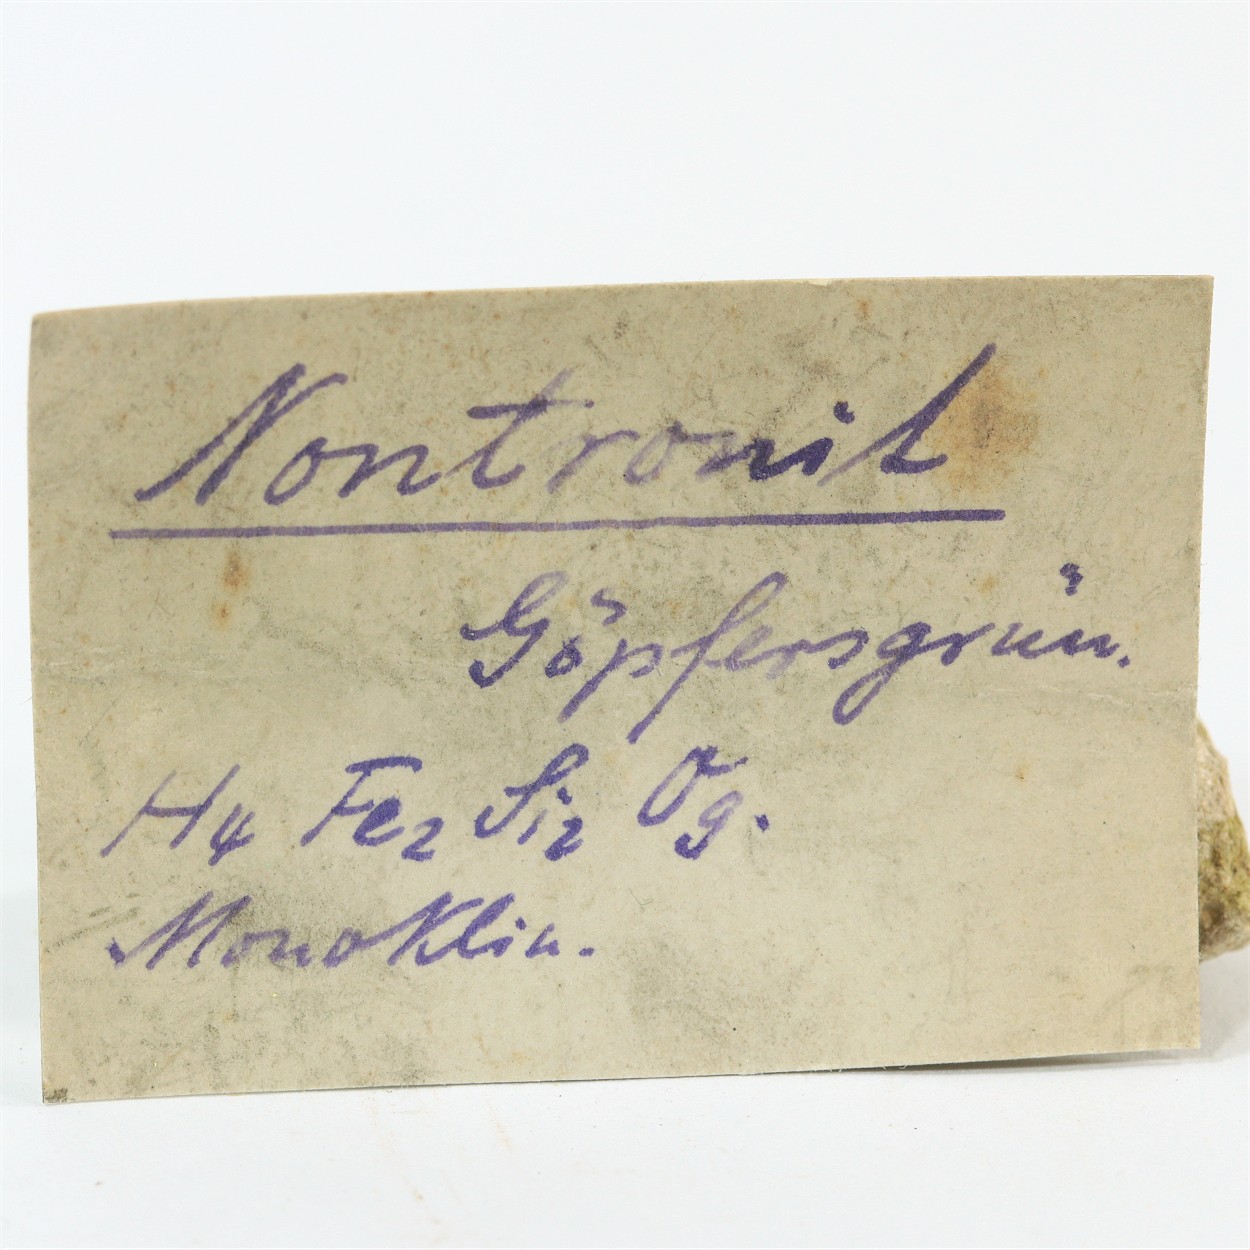 Nontronit
Göpfersgrün.
H₄ Fe₂ Si₂ O₉.
Monoklin.